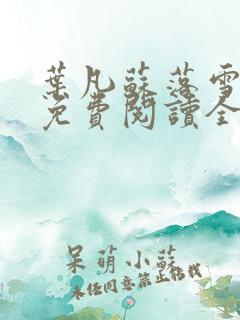 葉凡蘇落雪
免費閱讀全
呆萌小蘇
未经同意禁止转载